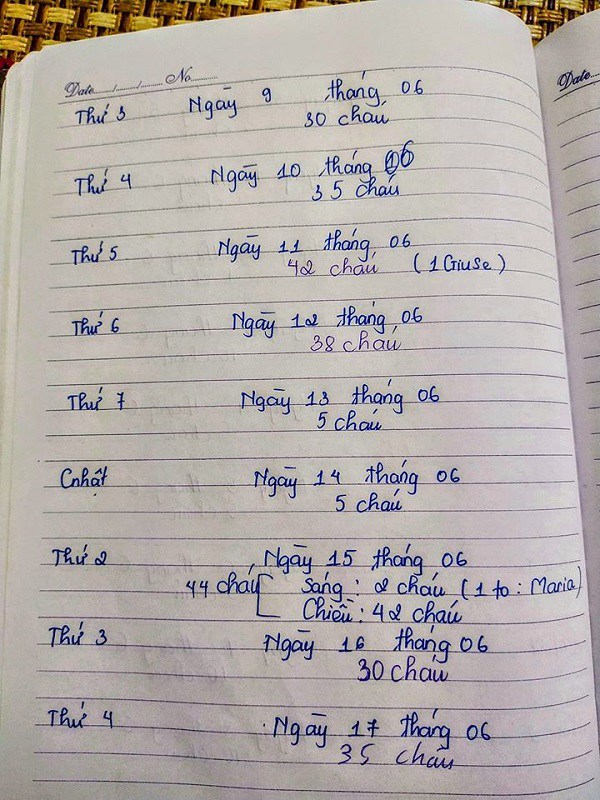 Date..../..../.... No........
Thứ 3 Ngày 9 tháng 06
30 cháu
Thứ 4 Ngày 10 tháng 06
35 cháu
Thứ 5 Ngày 11 tháng 06
42 cháu (1 Giuse)
Thứ 6 Ngày 12 tháng 06
38 cháu
Thứ 7 Ngày 13 tháng 06
5 cháu
Cnhật Ngày 14 tháng 06
5 cháu
Thứ 2 Ngày 15 tháng 06
44 cháu Sáng : 2 cháu (1 to : Maria)
Chiều : 42 cháu
Thứ 3 Ngày 16 tháng 06
30 cháu
Thứ 4 Ngày 17 tháng 06
35 cháu
Date